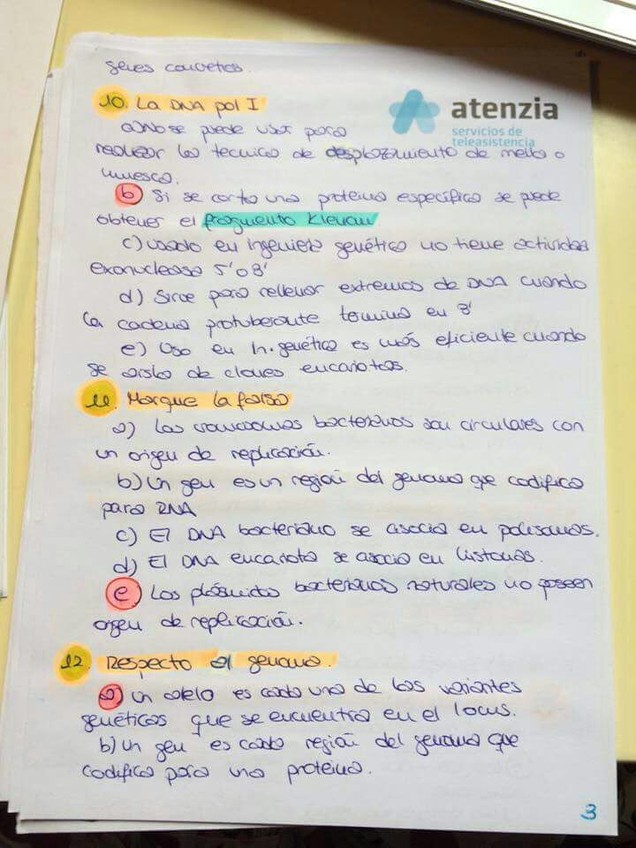 genes concretos.
10. La DNA pol I
atenzia
servicios de
teleasistencia
a) No se puede usar para
realizar la tecnica de desplazamiento de mella o
muesca.
b) Si se corta una proteina específica se puede
obtener el fragmento Klenow
c) usado en ingenieria genética no tiene actividad
exonucleasa 5' o 3'
d) Sirve para rellenar extremos de DNA cuando
la cadena protuberante termina en 3'
e) Uso en In. genética es más eficiente cuando
se aisla de clones eucariotas.
11. Marque la falsa
a) Los cromosomas bacterianos son circulares con
un origen de replicación.
b) Un gen es un región del genoma que codifica
para RNA
c) El DNA bacteriano se asocia en polisomas.
d) El DNA eucariota se asocia en histonas.
e) Los plásmidos bacterianos naturales no poseen
origen de replicación.
12. Respecto al genoma.
a) Un alelo es cada una de las variantes
genéticas que se encuentra en el locus.
b) Un gen es cada región del genoma que
codifica para una proteina.
3